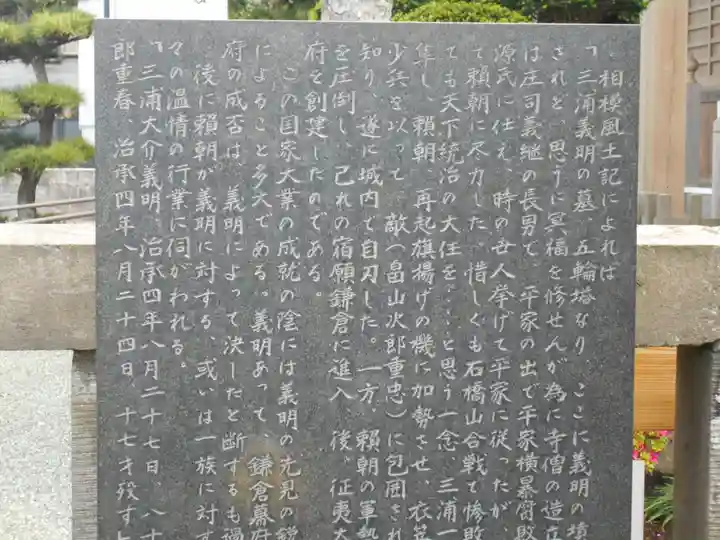 相模風土記によれば
「三浦義明の墓、五輪塔なり、ここに義明の墳
されど、思うに冥福を修せんが為に寺僧の造立
は庄司義継の長男で、平家の出で平家横暴腐敗
源氏に仕え、時の世人挙げて平家に従ったが、
て頼朝に尽力した、惜しくも石橋山合戦で惨敗
ても天下統治の大任を…と思う一念、三浦一
隼し、頼朝、再起旗揚げの機に加勢させ、衣笠
少兵を以って、敵(畠山次郎重忠)に包囲され
知り、遂に城内で自刃した。一方、頼朝の軍勢
を圧倒し、己れの宿願鎌倉に進入、後。征夷大
府を創建したのである。
この国家大業の成就の陰には義明の先見の
によること多大である。義明あって、鎌倉幕府
府の成否は、義明によって決したと断するも過
。後に頼朝が義明に対する、或いは一族に対す
々の温情の行業に伺がわれる。
「三浦大介義明、治承四年八月二十七日、八十
郎重春、治承四年八月二十四日、十七才歿す